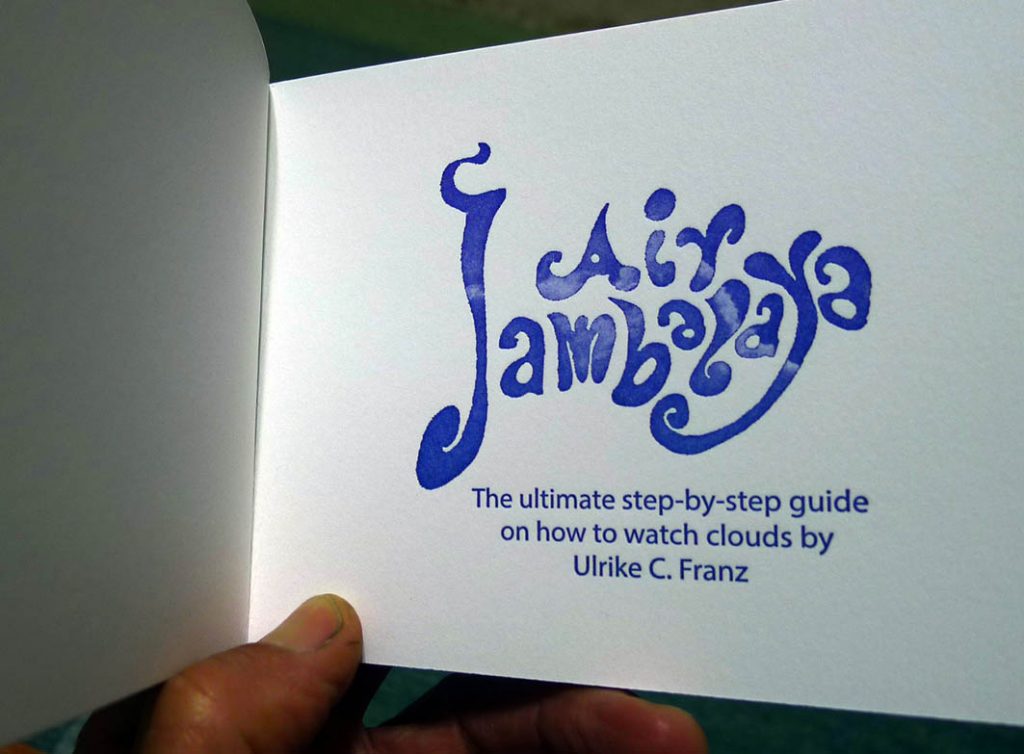 Air
Jambalaya
The ultimate step-by-step guide
on how to watch clouds by
Ulrike C. Franz